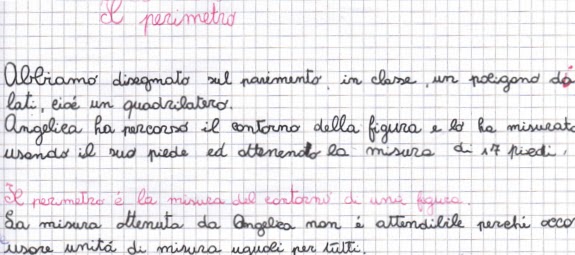 Il perimetro
Abbiamo disegnato sul pavimento, in classe, un poligono da
lati, cioè un quadrilatero.
Angelica ha percorso il contorno della figura e lo ha misurato
usando il suo piede ed ottenendo la misura di 17 piedi.
Il perimetro è la misura del contorno di una figura.
La misura ottenuta da Angelica non è attendibile perché occo
usare unità di misura uguali per tutti.